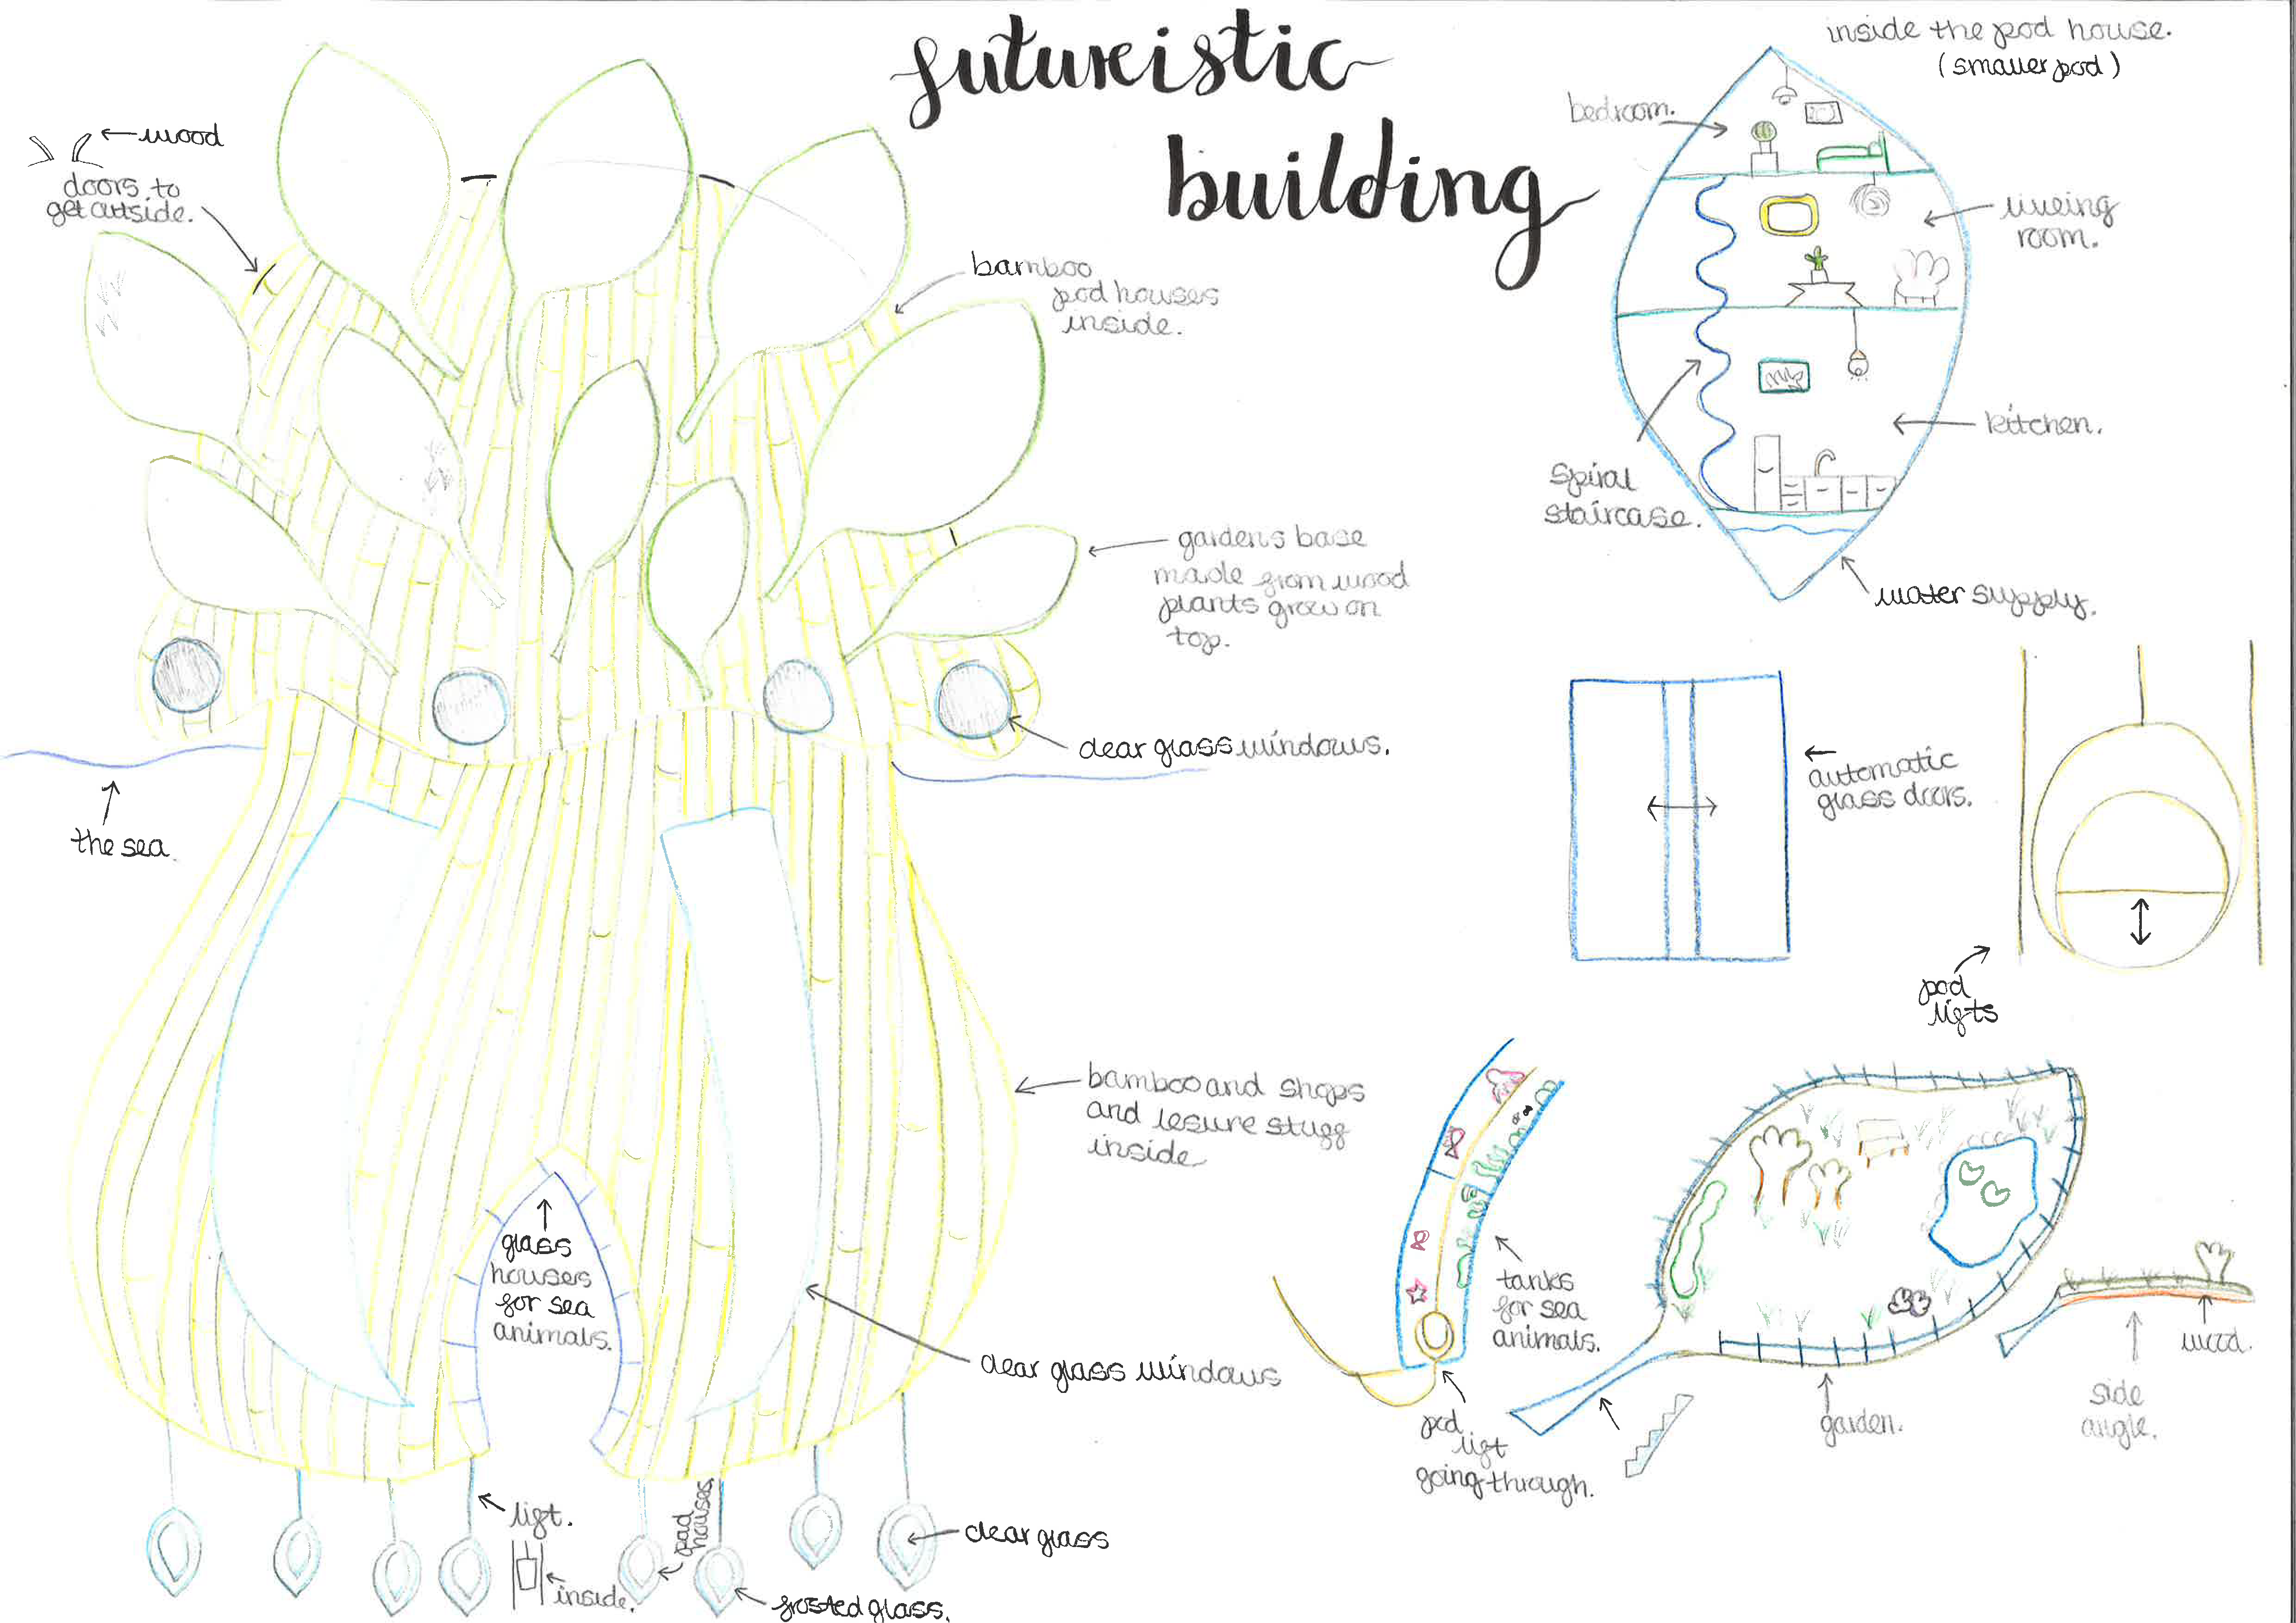 futureistic
building
inside the pod house.
(smaller pod)
bedroom.
liveing
room.
kitchen.
spiral
staircase.
water supply.
wood
doors to
get outside.
bamboo
pod houses
inside.
gardens base
made from wood
plants grow on
top.
clear glass windows.
the sea.
automatic
glass doors.
pod
lifts
bamboo and shops
and lesure stuff
inside
glass
houses
for sea
animals.
clear glass windows
tanks
for sea
animals.
pod
lift
going through.
garden.
side
angle.
wood.
lift.
inside.
pod
houses.
clear glass
frosted glass.